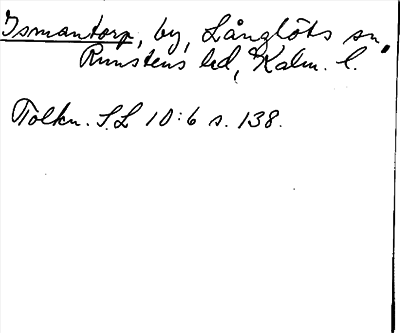 Ismantorp, by, Långlöts sn,
Runstens hd, Kalm. l.
Tolkn. S.L 10:6 s. 138.